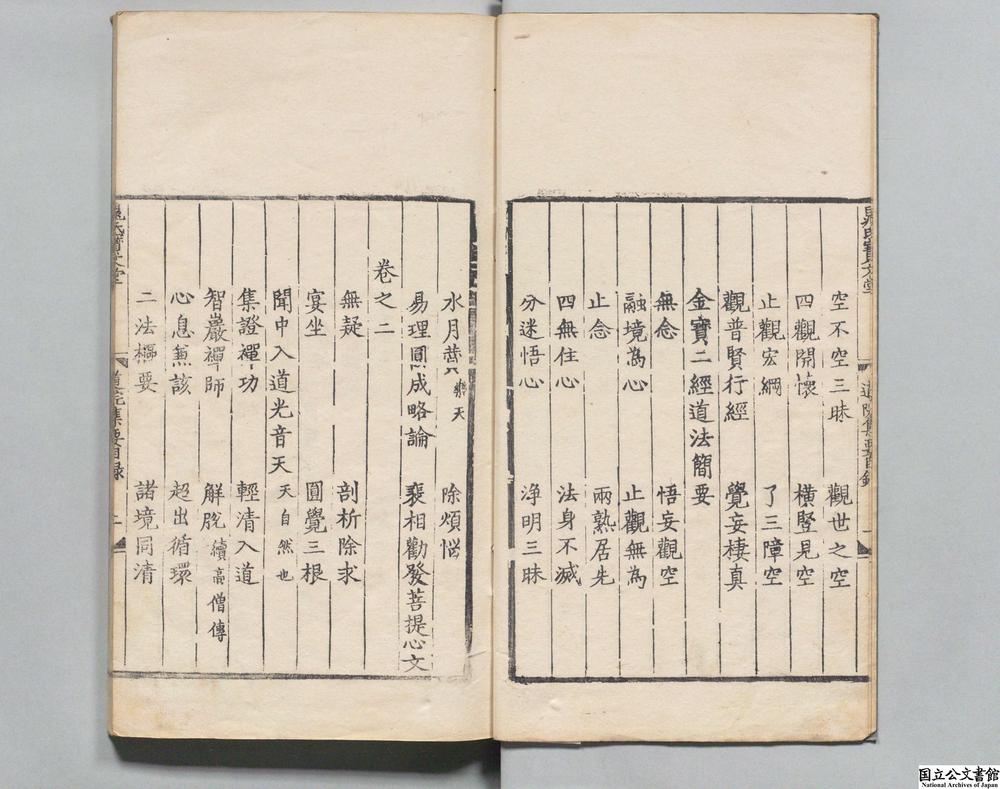 空不空三昧　觀世之空
四觀開懷　橫豎見空
止觀宏綱　了三障空
觀普賢行經　覺妄棲真
金寶二經道法簡要
無念　悟妄觀空
融境為心　止觀無為
止念　兩熟居先
四無住心　法身不滅
分迷悟心　淨明三昧
水月 樂天　除煩惱
易理圓成略論　裴相勸發菩提心文
卷之二
無疑　剖析除求
宴坐　圓覺三根
聞中入道光音天 天自然也
集證禪功　輕清入道
智巖禪師　解脫 續高僧傳
心息兼該　超出循環
二法樞要　諸境同清
道院集要目錄 二
国立公文書館
National Archives of Japan